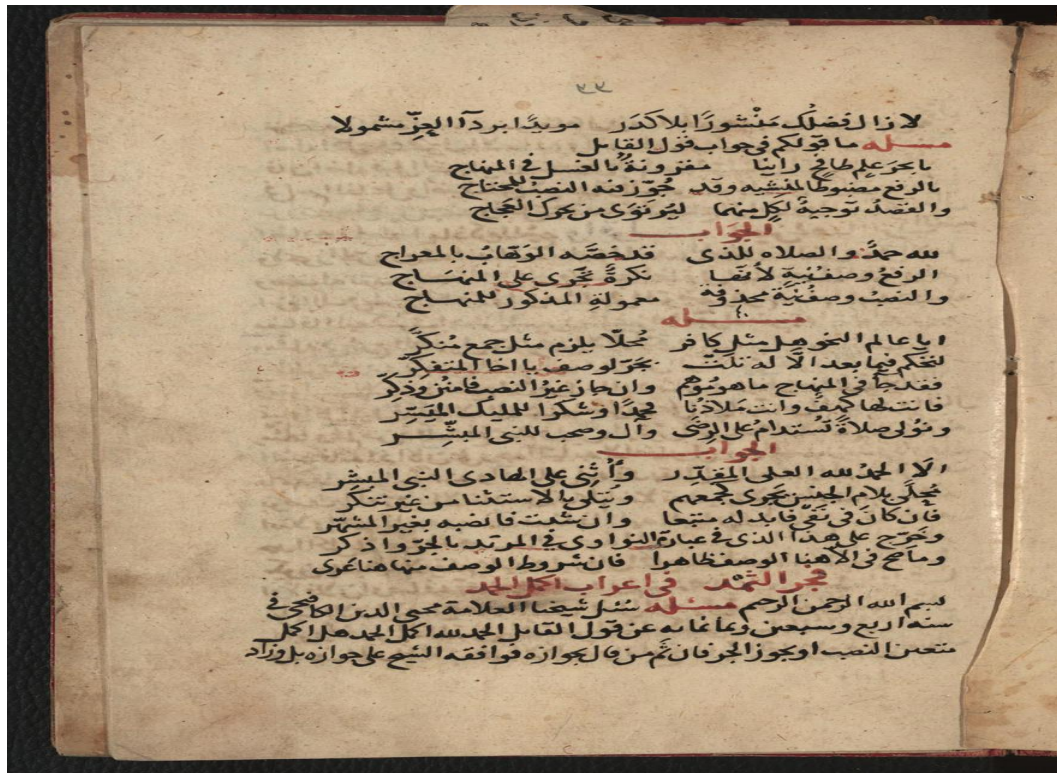 لا زال فضلك منشورًا بلا كدر مويدًا برد آ العزّ مشمولا
مسئله ما قولكم في جواب قول القايل
يا بحر علم طافح راينا مقرونةً بالغسل في المنهاج
بالرفع مضبوطا لمنشيه وقد جُوّز فيه النصبُ للمحتاج
والقصدُ توجيهٌ لكل منهما من بحرك العجاج
الجواب
لله حمدٌ والصلاه للذى قد خصّه الوهّابُ بالمعراج
الرفعُ وصفيّةٍ لأنّها نكرةٌ تجْرى على المنهاج
والنصبُ وصفيّةٍ محذوفة معمولةِ المذكور للمنهاج
مسئله
ايا عالم النحو هل مثل كافر مُحلّا يلزم مثل جمع مُنكّرً
لنحكم فيما بعد الّا له تلت بجرّ لوصف يا اخا المتفكّر
فقد جآ في المنهاج ما هو مُوهم وان جاز غيرُ النصب فامنن وذكّر
فانت لها كهفٌ وانت ملاذنا فحمدًا وشكرا للمليك الميسّر
ونولى صلاةً تُستدامُ على الرضى وآل وصحب للنبى المبشّر
الجواب
الا الحمد لله العلى المقدّر وأُثنى على الهادى النبى المبشر
مُحلّى بلام الجنس يجرى كجمعهم ويتلى بالاستثنا من غير تنكر
فإن كان في نفى فابدله متبعا وان شئت فانصبه بغير المشهّر
وخرّج على هذا الذى في عبارة النواوى في المرتد بالجرّ واذكر
وما صح في الّا هنا الوصف ظاهرا فان شروط الوصف منها هنا عَرى
فجر الثمد في اعراب اكمل الحمد
بسم الله الرحمن الرحيم مسئله سُئل شيخنا العلامة محيى الدين الكافيجى في
سنه اربع وسبعين وثمانمائه عن قول القايل الحمد لله اكمل الحمد هل اكمل
متعين النصب او يجوز الجر فان ثَمّ من قال بجوازه فوافقه الشيخ على جوازه بل وزاد